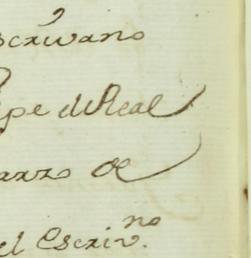 scrivano
pe de Real
arzo de
el Escriv.no